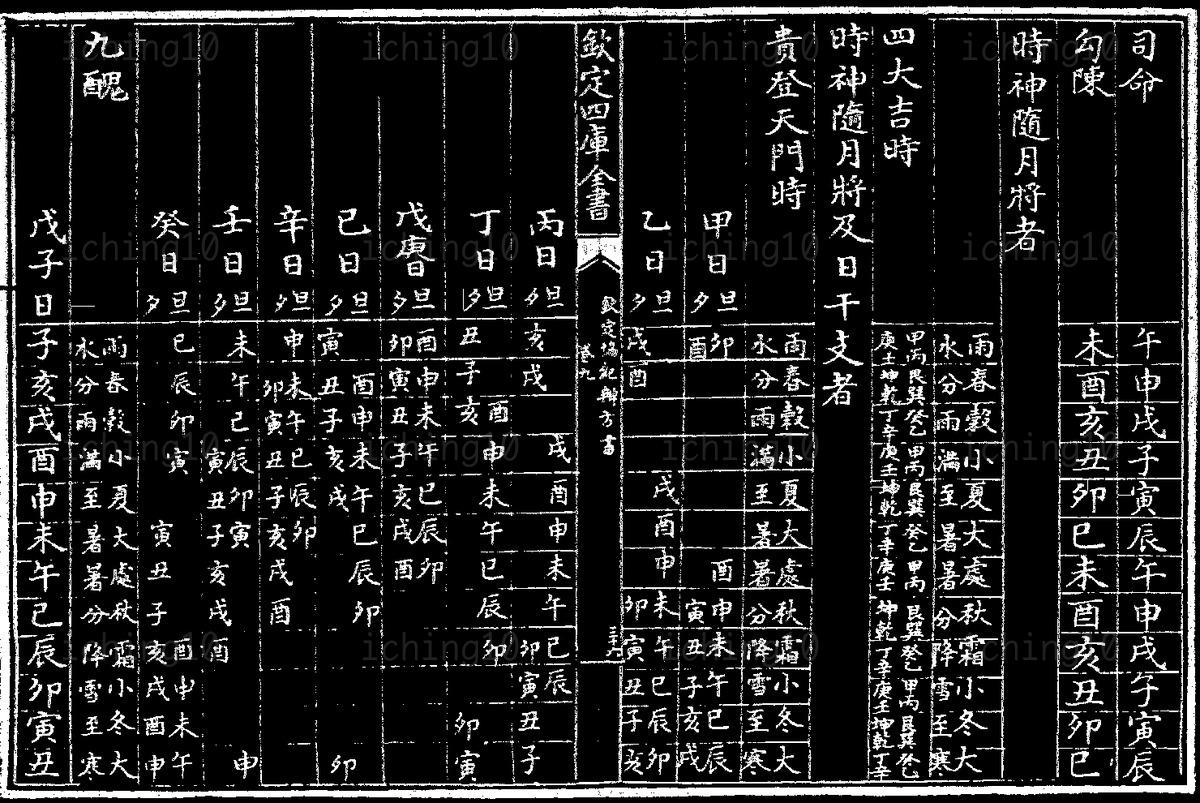 司命 午 申 戌 子 寅 辰 午 申 戌 子 寅 辰
勾陳 未 酉 亥 丑 卯 巳 未 酉 亥 丑 卯 巳
時神隨月將者
雨水 春分 穀雨 小滿 夏至 大暑 處暑 秋分 霜降 小雪 冬至 大寒
四大吉時 甲丙庚壬 艮巽坤乾 癸乙丁辛 甲丙庚壬 艮巽坤乾 癸乙丁辛 甲丙庚壬 艮巽坤乾 癸乙丁辛 甲丙庚壬 艮巽坤乾 癸乙丁辛
時神隨月將及日干支者
貴登天門時 雨水 春分 穀雨 小滿 夏至 大暑 處暑 秋分 霜降 小雪 冬至 大寒
甲日 旦夕 卯酉 酉 申寅 未丑 午子 巳亥 辰戌
乙日 旦夕 戌 酉 戌 酉 申 未卯 午寅 巳丑 辰子 卯亥
欽定四庫全書
欽定協紀辨方書
卷九
丙日 旦夕 亥 戌 戌 酉 申 未 午 巳卯 辰寅 丑 子
丁日 旦夕 丑 子 酉亥 申 未 午 巳 辰 卯 卯 寅
戊庚日 旦夕 酉卯 申寅 未丑 午子 巳亥 辰戌 卯酉
己日 旦夕 寅 酉丑 申子 未亥 午戌 巳 辰 卯 卯
辛日 旦夕 申 未卯 午寅 巳丑 辰子 卯亥 戌 酉
壬日 旦夕 未 午 巳 辰寅 卯丑 寅子 亥 戌 酉 申
癸日 旦夕 巳 辰 卯 寅 寅 丑 子 酉亥 申戌 未酉 午申
九醜 雨水 春分 穀雨 小滿 夏至 大暑 處暑 秋分 霜降 小雪 冬至 大寒
戊子日 子 亥 戌 酉 申 未 午 巳 辰 卯 寅 丑